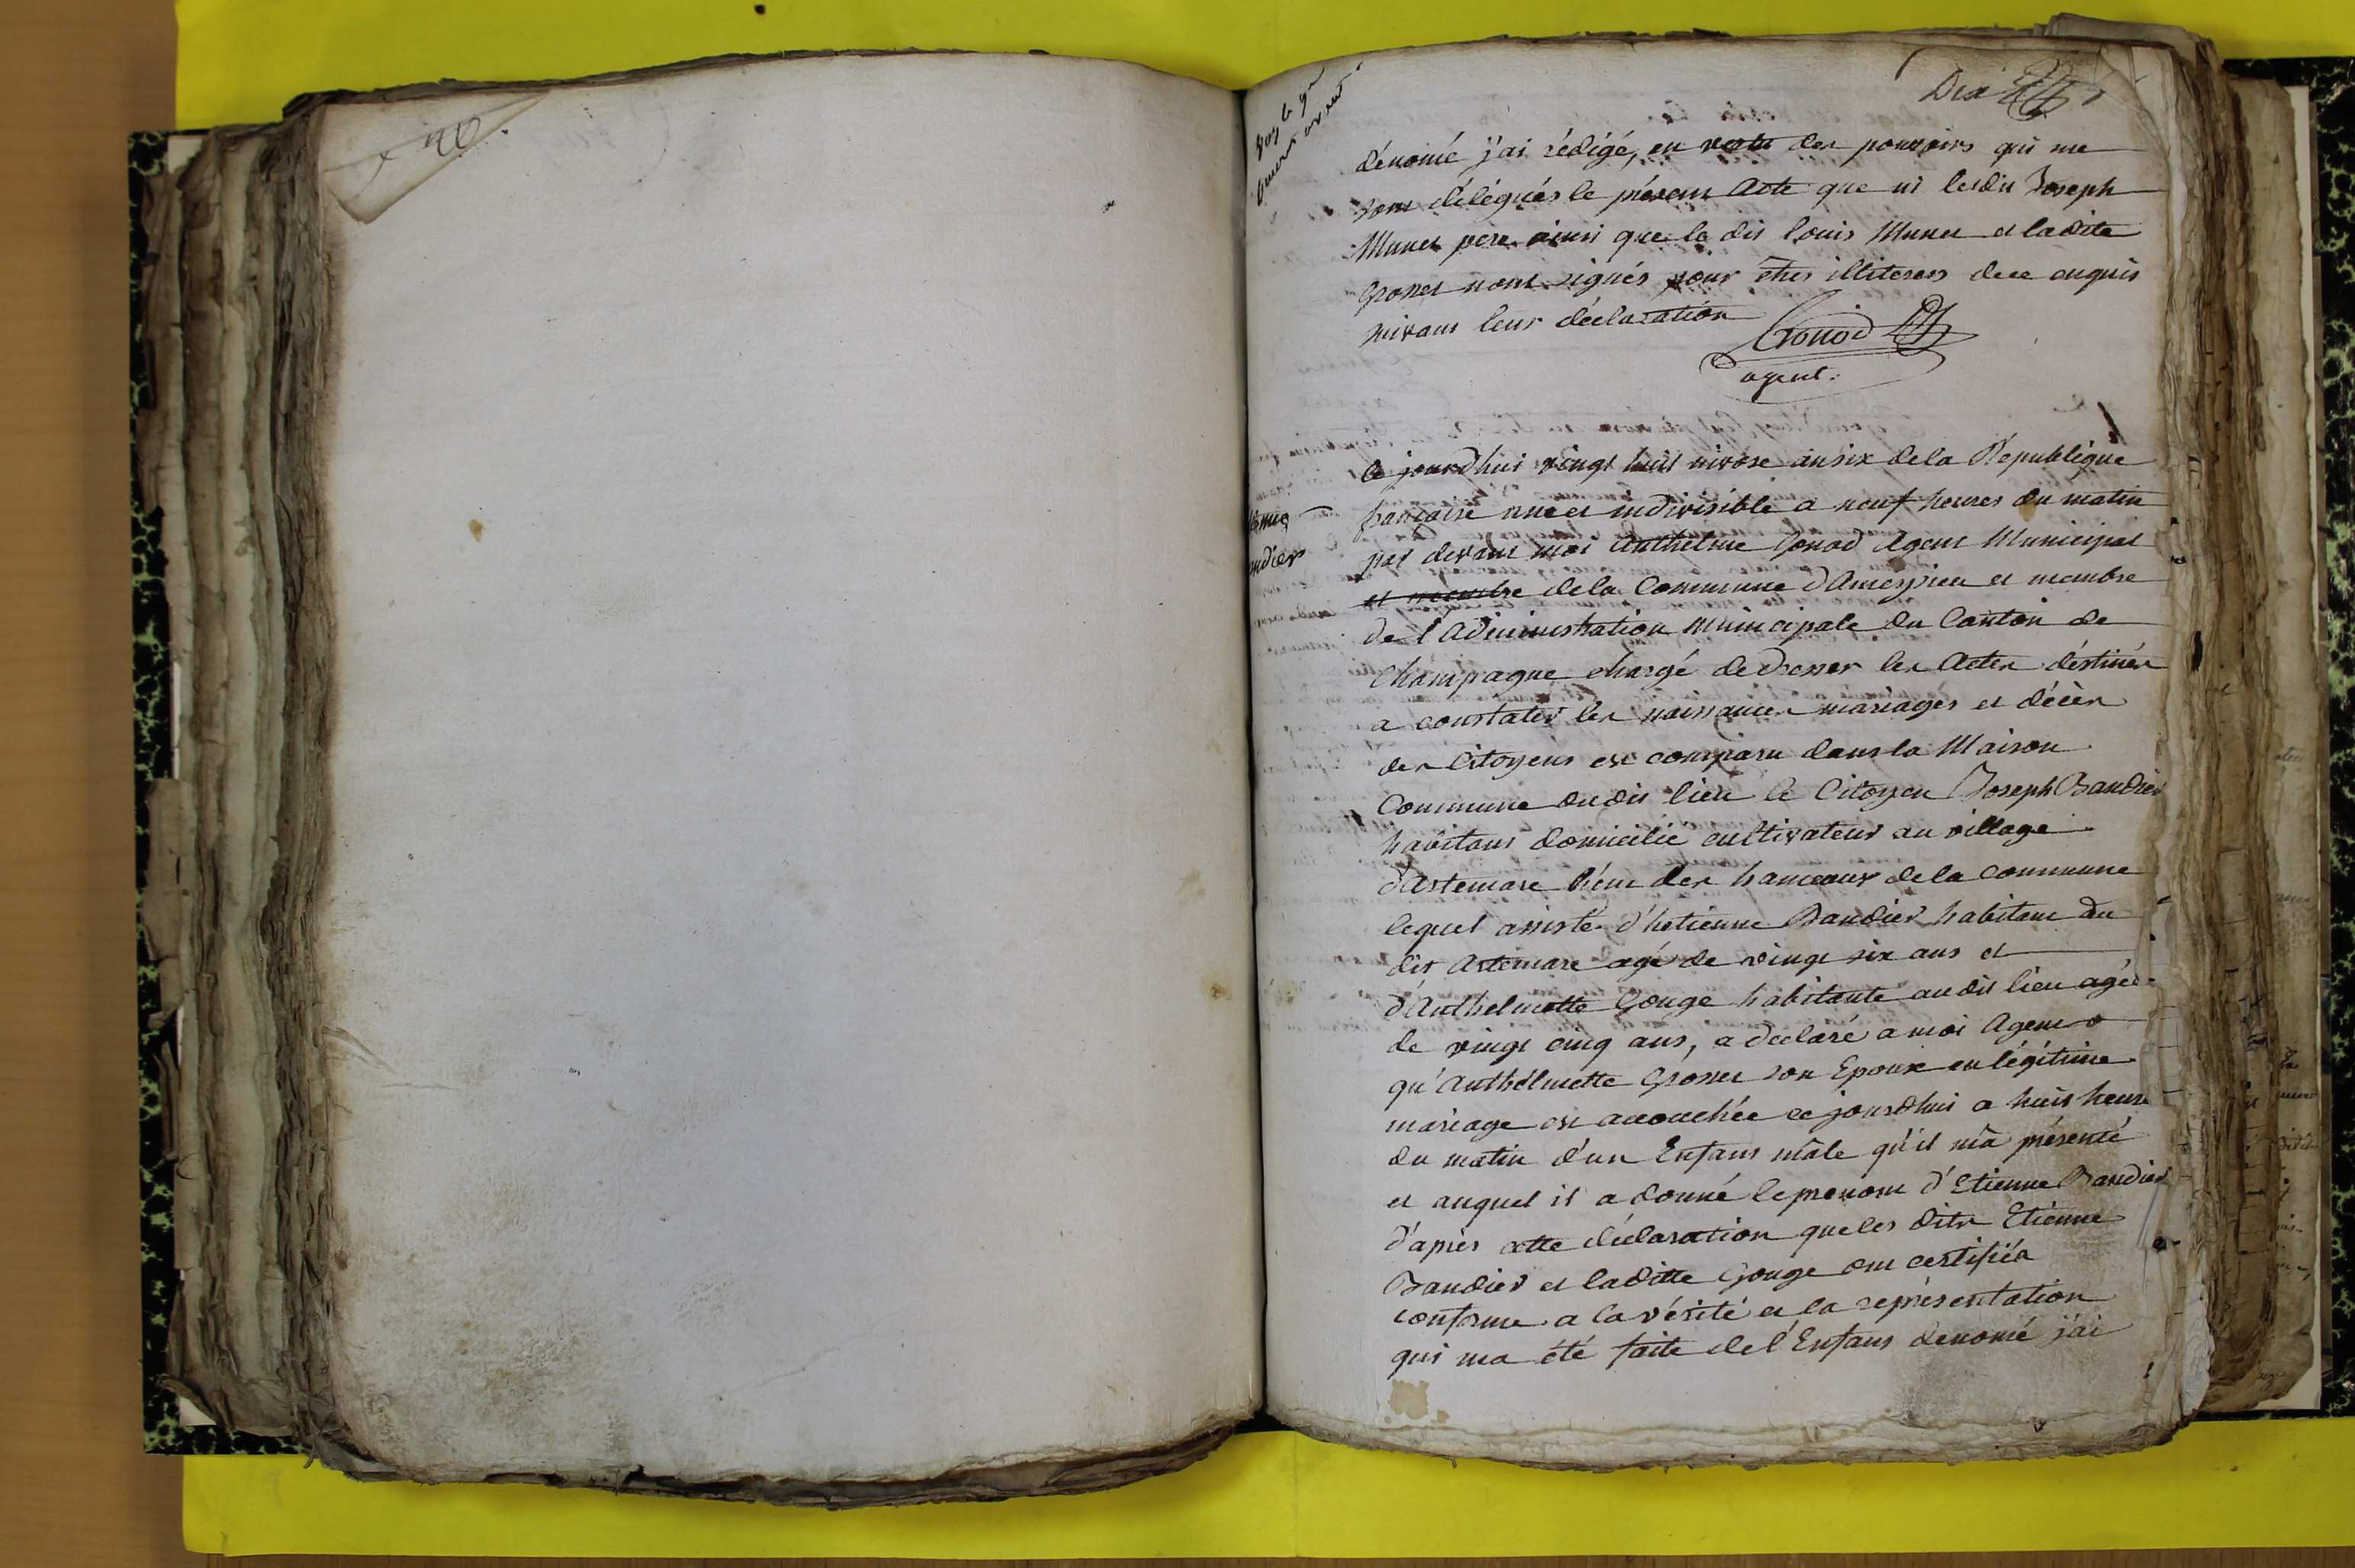 Dix
dénomé j'ai rédigé, en vertu des pouvoirs qui me
sont délégués le présent Acte que ni lesdit Joseph
Munet pere ainsi que le dit Louis Munet et ladite
Grosset nont signés pour êtres illiteres de ce enquis
suivant leur déclaration
Gonod
agent.
ce jourdhui vingt huit nivose an six de la Republique
francaise une et indivisible a neuf heures du matin
par devant moi Anthelme Gonod Agent Municipal
et membre de la Commune d'Ameyzieu et membre
de l'Administration Municipale du Canton de
Champagne chargé de dresser les Actes déstinés
a constater les naissances mariages et décès
des Citoyens est comparu dans la Maison
Commune du dit lieu le Citoyen Joseph Baudier
habitant domicilié cultivateur au village
d'Artemare l'un des hameaux de la commune
lequel assisté d'hetienne Baudier habitant du
dit Artemare agé de vingt six ans et
d'Anthelmette Gouge habitante au dit lieu agée
de vingt cinq ans, a declaré a moi Agent
qu'Anthélmette Grosset son Epouse en légitime
mariage est accouchée ce jourdhui a huit heures
du matin d'un Enfant mâle qu'il m'a présenté
et auquel il a donné le prenom d'Etienne Baudier
d'après cette déclaration que les dits Etienne
Baudier et laditte Gouge ont certifiéa
conforme a la vérité et la représentation
qui ma été faite de l'Enfant denomé j'ai